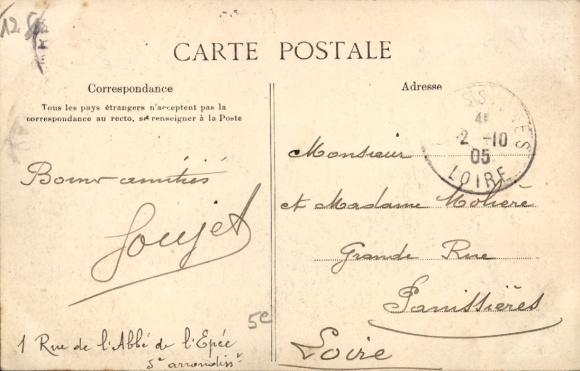 CARTE POSTALE
Correspondance
Tous les pays étrangers n'acceptent pas la
correspondance au recto, se renseigner à la Poste
Adresse
2 -10
05
LOIRE
Bonnes amitiés
Goujet
1 Rue de l'Abbé de l'Epée
5e arrondisst
5e
Monsieur
et Madame Molière
Grande Rue
Panissières
Loire